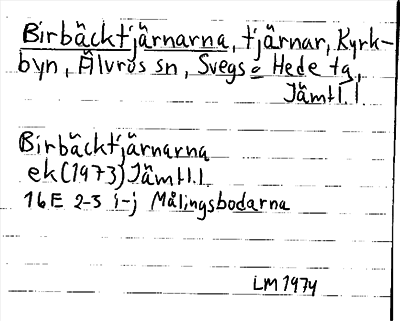 Birbäcktjärnarna, tjärnar, Kyrk-
byn, Älvros sn, Svegs o Hede tg,
Jämtl.l.
Birbäcktjärnarna
ek(1973)Jämtl.l
16E 2-3 i-j Målingsbodarna
LM 1974